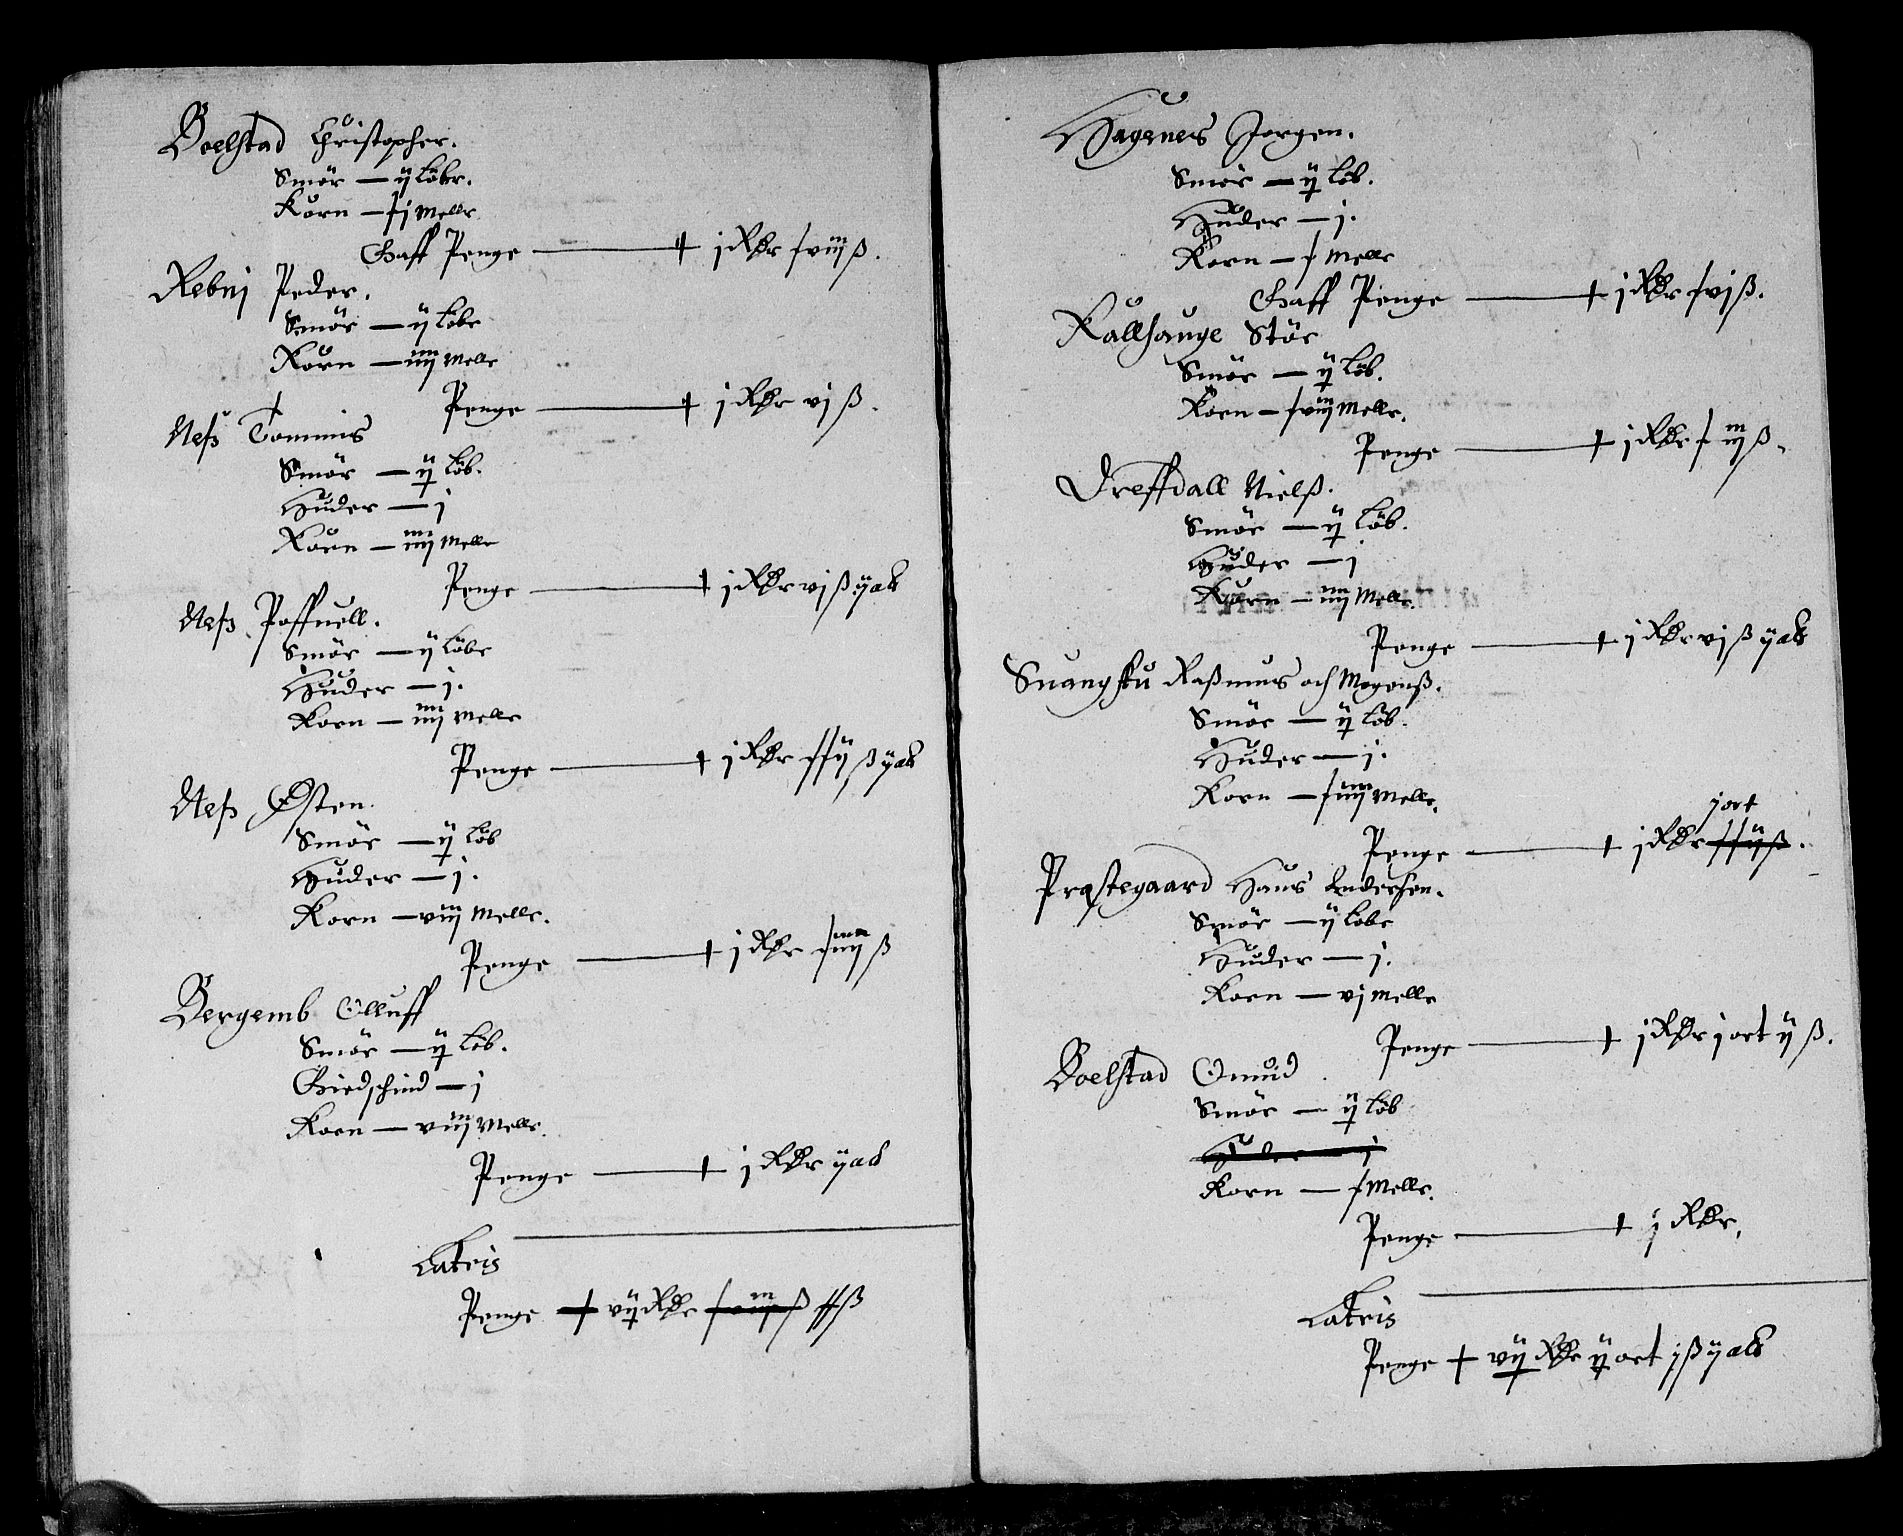 Boelstad Christopher.
Smör — ij Löbr.
Korn — xj Melle
Gaff Penge — + j Rdr xviij ß.
Rebnj Peder.
Smör — ij Löbe
Korn — iiij Melle
Penge — + j Rdr vj ß.
Neß Tommis
Smör — ij Löb.
Huder — j
Korn — iiij Melle
Penge — + j Rdr vj ß ij alb
Neß Poffuell.
Smör — ij Löbe
Huder — j.
Korn — iiij Melle
Penge — + j Rdr xxij ß ij alb
Neß Østen.
Smör — ij Löb
Huder — j.
Korn — viij Melle.
Penge — + j Rdr xiiij ß
Bergemb Olluff
Smör — ij Löb.
Giedschind — j
Korn — viij Melle.
Penge — + j Rdr ij alb
Lateris
Penge + vij Rdr xviij ß xx ß
Hagenes Jorgen.
Smör — ij Löb.
Huder — j.
Korn — x Melle
Gaff Penge — + j Rdr xvj ß.
Kallhauge Stör
Smör — ij Löb.
Korn — xviij Melle.
Penge — + j Rdr x iij ß.
Dreffdall Nielß.
Smör — ij Löb.
Huder — j
Korn — iiij Melle.
Penge — + j Rdr vj ß ij alb
Suangstu Raßmus och Mogenß.
Smör — ij Löb.
Huder — j.
Korn — xiiij Melle.
j ort
Penge — + j Rdr xxij ß.
Præstegaard Hans Andersen.
Smör — ij Löbe
Huder — j.
Korn — vj Melle
Penge — + j Rdr j ort ij ß.
Boelstad Omud
Smör — ij Löb
Huder — j
Korn — x Melle.
Penge — + j Rdr.
Lateris
Penge + vij Rdr ij ort j ß ij alb